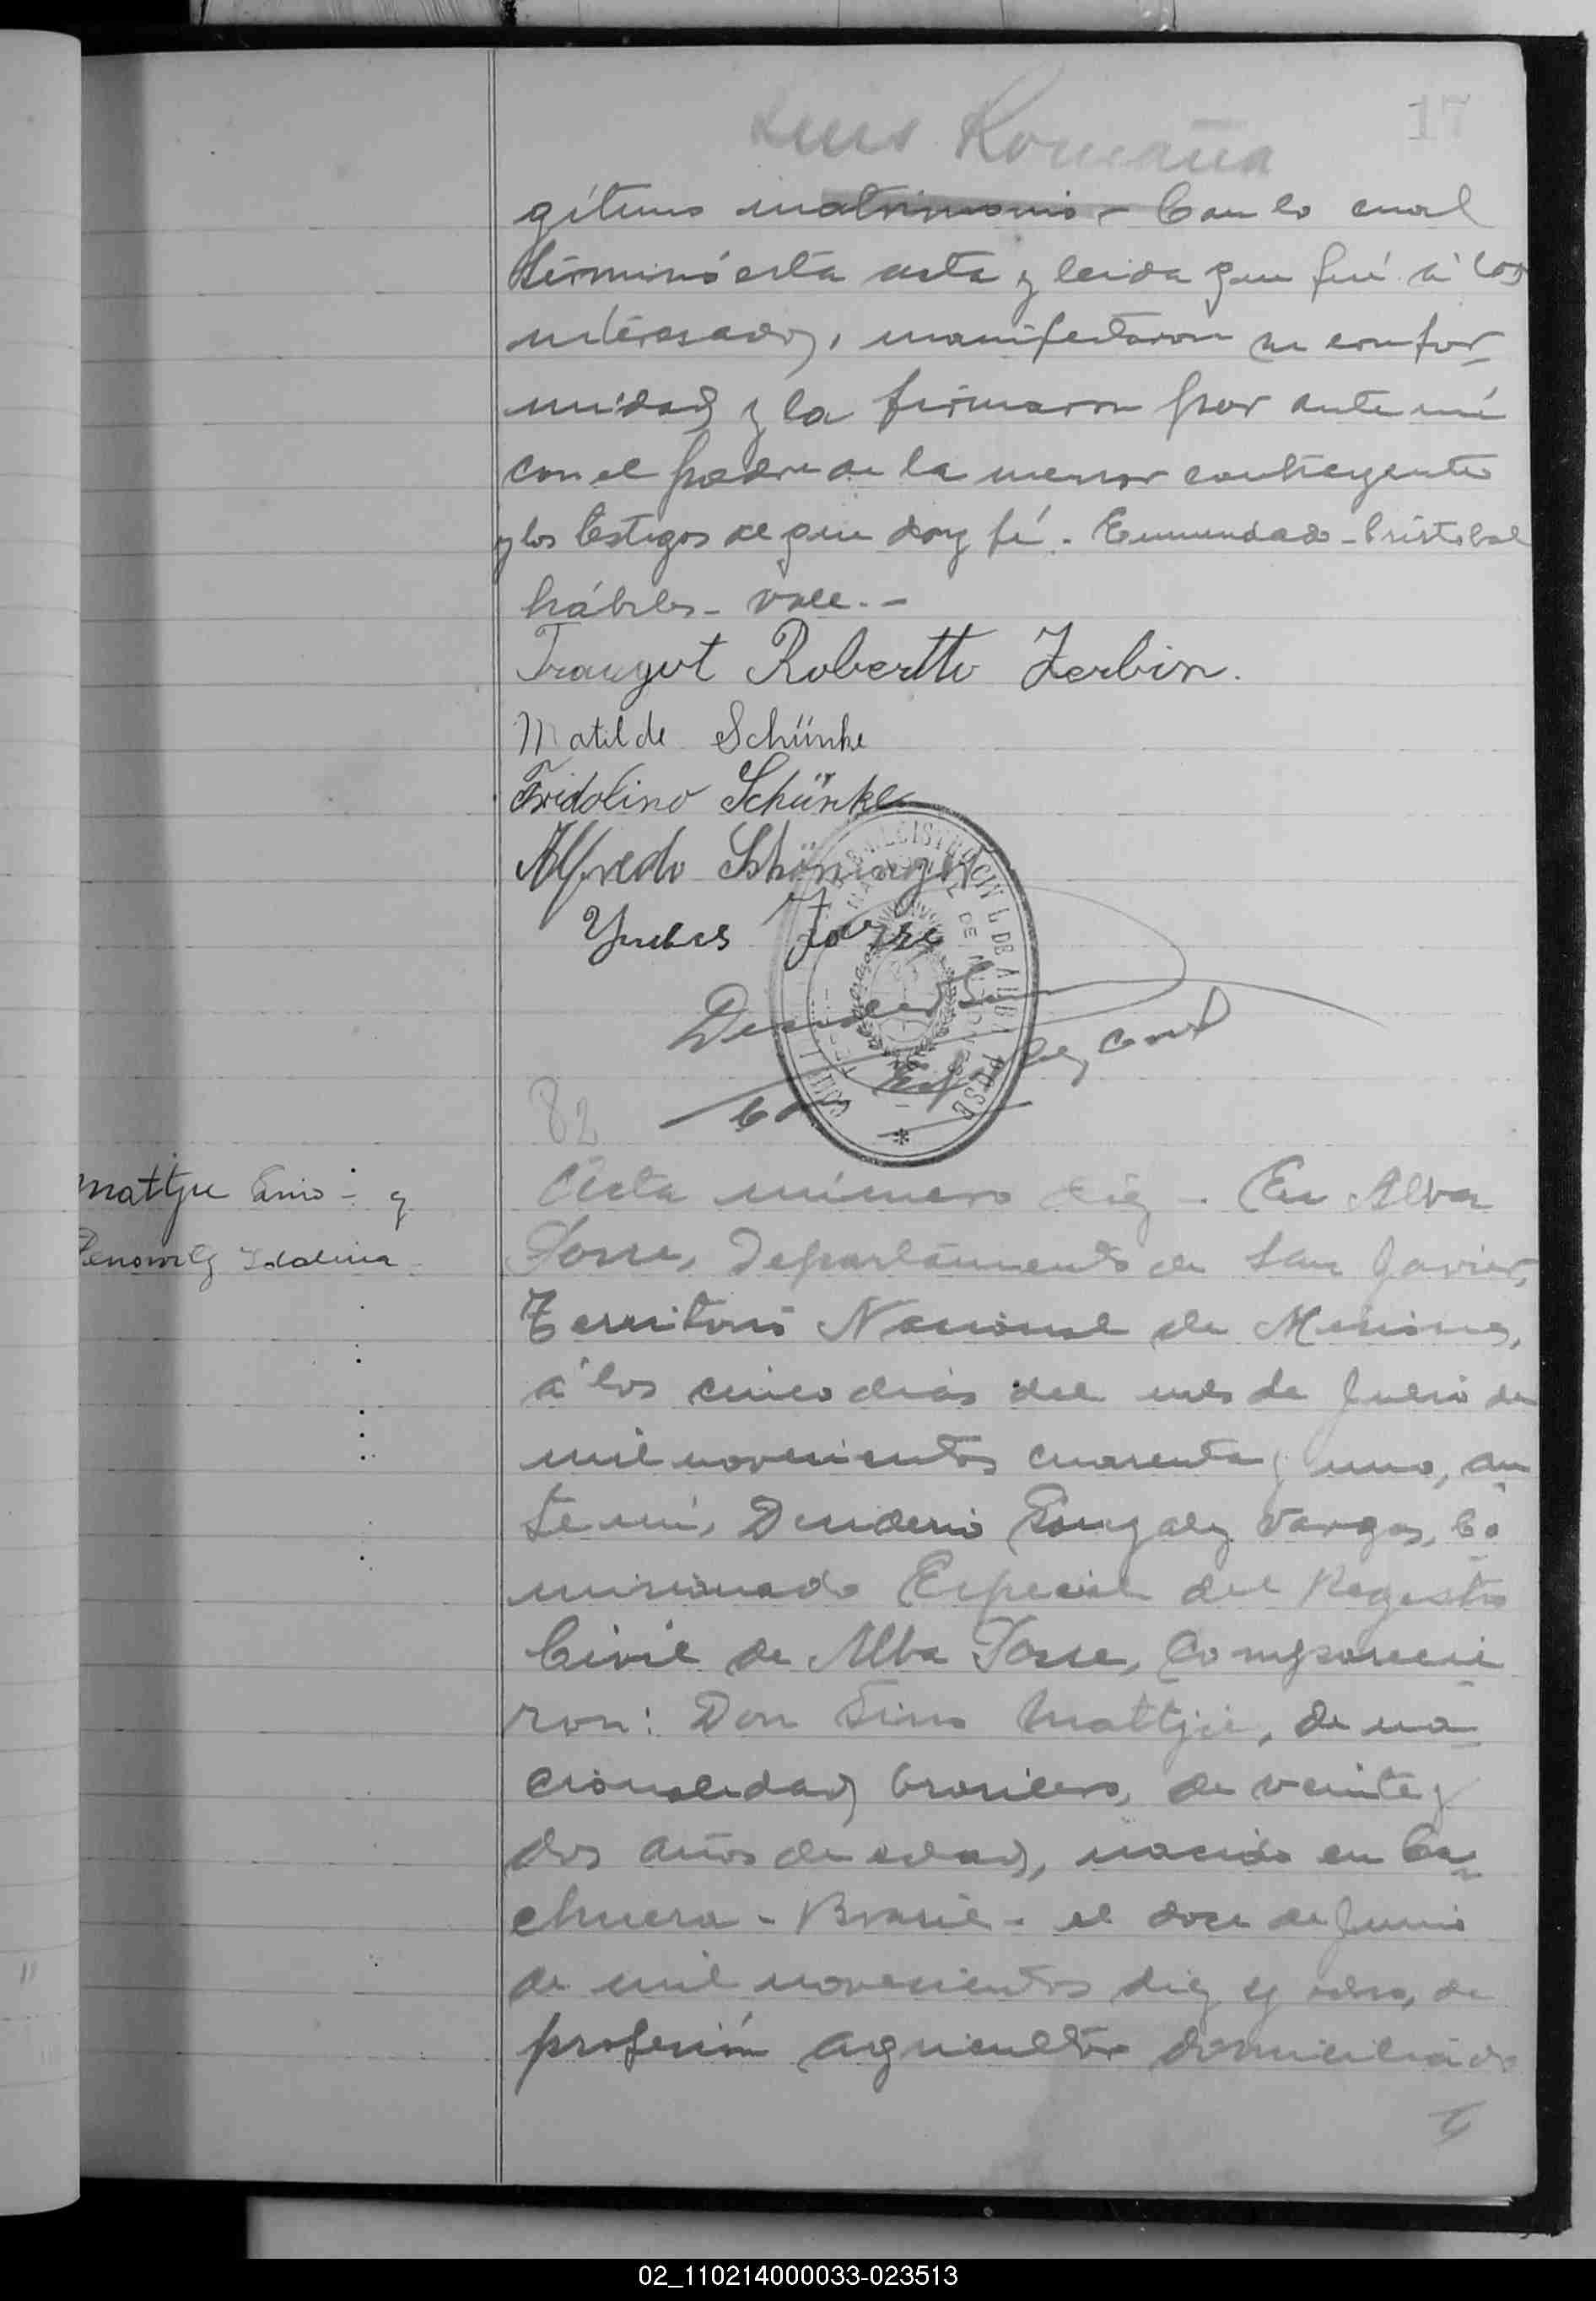 17
Luis Romaña
gítimo matrimonio - Con lo cual
términó esta acta y leida que fué á los
interesados, manifestaron su confor-
midad y la firmaron por ante mí
con el padre de la menor contrayente
y los testigos de que doy fé. Enmendado - Cristobal
hábiles - vale. -
Traugot Robertto Zerbin.
Matilde Schünke
Fridolino Schünke
Alfredo Schöninger
82
Mattjie - y
Idalina
Acta número diez - En Alva
Posse, Departamento de San Javier,
Territorio Nacional de Misiones,
á los cinco dias del mes de Julio de
mil novecientos cuarenta y uno, an
te mí, Desiderio Gonzalez Vargas, Co
misionado Especial del Registro
Civil de Alba Posse, Comparecie
ron: Don Mattjie, de na-
cionalidad brasilero, de veinte y
dos años de edad, nacido en Ca-
chuera - Brasil - el doce de Junio
de mil novecientos diez y ocho, de
profesión agricultor domiciliado
02_110214000033-023513